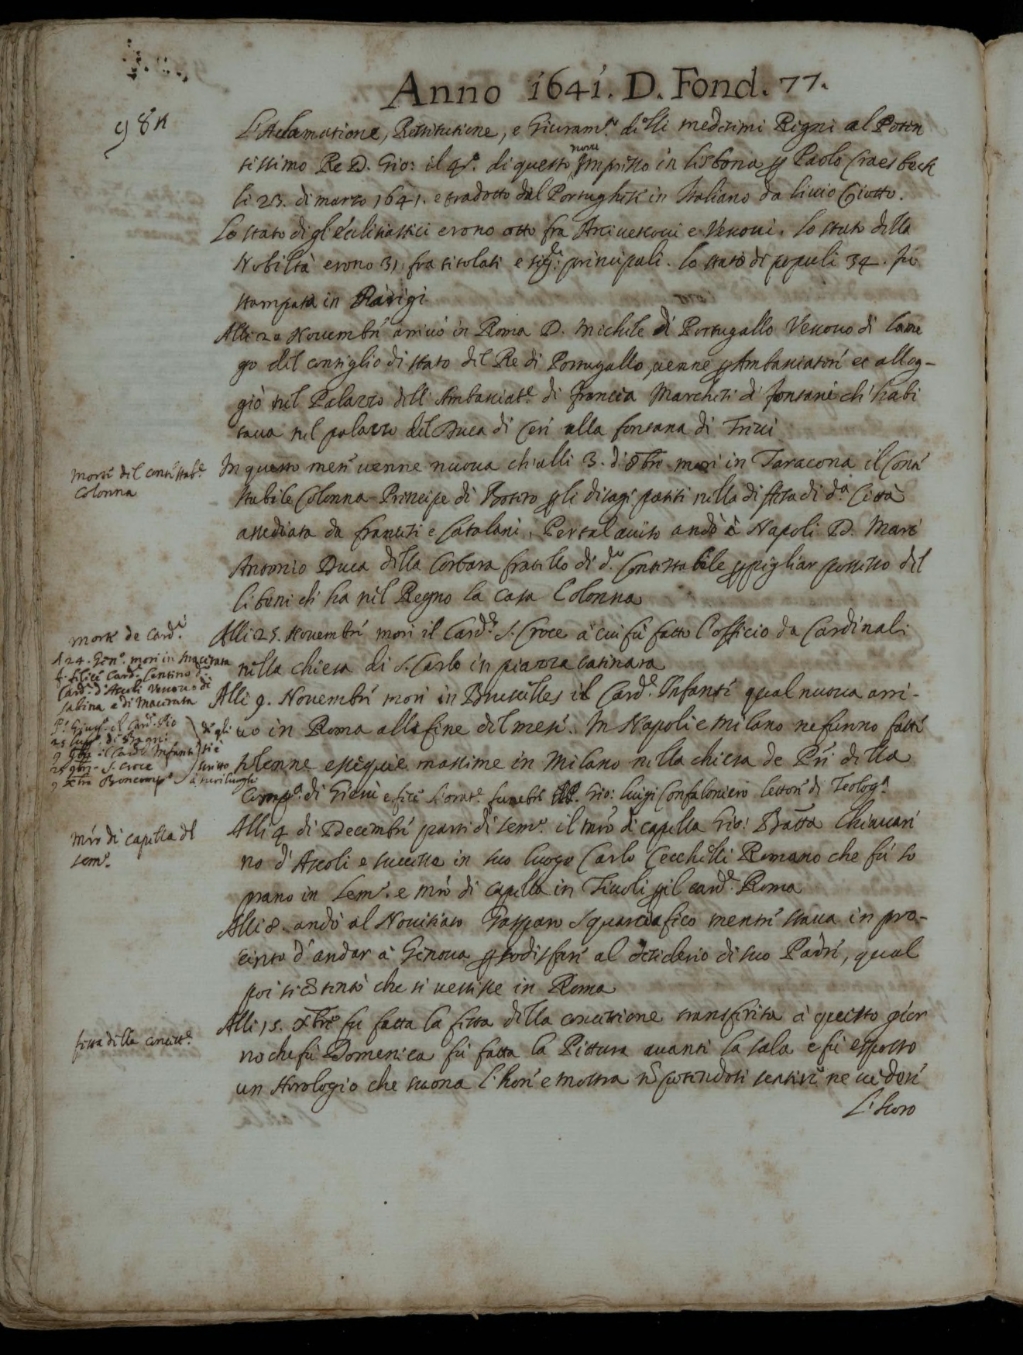 Anno 1641. D. Fond. 77.
98
L'Aclamatione, Restitutione, e Giuram.to delli medesimi Regni al Poten
tissimo Re D. Gio: il 4.o di questo nome Impresso in Lisbona p Paolo Craesbeck
li 23. di marzo 1641. e tradotto dal Portughese in Italiano da Giotto.
Lo stato degl'Ecclesiastici erono otto fra Arcivescovi e Vescovi. lo stato della
Nobiltà erono 31 fra titolati e principali. lo stato di populi 34. fù
stampata in Parigi
Alli 20 Novembre arrivò in Roma D. Michele di Portugallo Vescovo di Lame
go del consiglio di stato del Re di Portugallo, venne p Ambasciatore et allog-
giò nel Palazzo dell'Ambasciat.e di Francia Marchese di fontanè ch'habi
tava nel palazzo del Duca di Ceri alla fontana di Trevi
morte del contestab.e
Colonna
In questo mese venne nuova ch'alli 3. di 8bre morì in Taracona il Conte
stabile Colonna Principe di Botero p li disagi patiti nella difesa di d.a Città
assediata da francesi e Catalani. Per tal aviso andò à Napoli D. Marc
Antonio Duca della Corbara fratello di d.o Contestabile p pigliar possesso del
li beni ch'ha nel Regno la casa Colonna
morte de Card.i
Alli 25. Novembre morì il Card.e S. Croce à cui fù fatto l'officio da Cardinali
nella chiesa di S. Carlo in piazza catinara
A 24. Gen.o morì in Macerata
Card. Centino
Card.e d'Ascoli Vescovo di
Sabina e di Macerata
il Card. Pio
di Bagni
il Card. Infante
25 9bre S. Croce
Xbre Boncomp.
Alli 9. Novembre morì in Bruselles il Card.e Infante qual nuova arri-
vò in Roma alla fine del mese. In Napoli e Milano ne furno fatte
solenne essequie massime in Milano nella chiesa de PP. della
Comp.a di Giesù e fece l'orat.e funebre Gio: Luigi Confaloniero lettore di Teolog.a
mro di capella del
Sem.o
Alli 4 di Decembre partì di Sem.o il mro di capella Gio: Batta Chinazzi
no d'Ascoli e successe in suo luogo Carlo Cecchelli Romano che fù so
prano in Sem.o e mro di capella in Tivoli p il Card.e Roma
Alli 8. andò al Novitiato Gasparo Squarciafico mentre stava in pro-
cinto d'andar à Genova p sodisfare al desiderio di suo Padre, qual
poi si contentò che si vestisse in Roma
festa della concett.e
Alli 15. Xbre fu fatta la festa della concettione transferita à questo gior
no che fù Domenica fù fatta la Pittura avanti la sala e fù esposto
un Horologio che suona l'hore e mostra nō potendosi sentire ne vedere
L'Horo